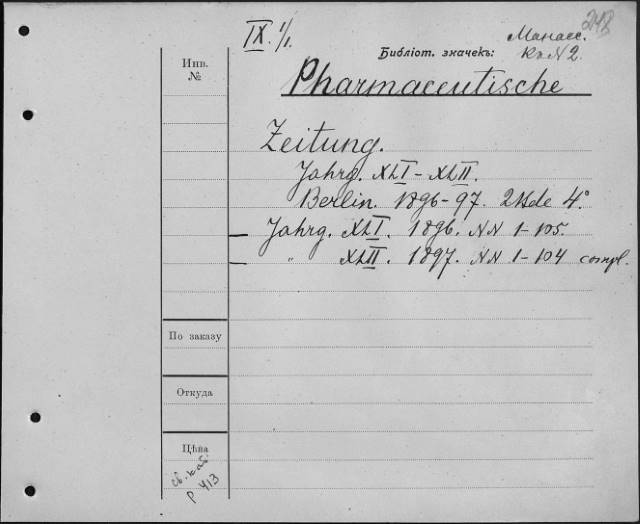 248
IX 1/1.
Манасс.
Библіот. значекъ: Кн. N 2.
Инв.
№
Pharmaceutische
Zeitung.
Jahrg. XLI - XLII.
Berlin. 1896-97. 2 Bde 4°
Jahrg. XLI. 1896. NN 1-105.
" XLII. 1897. NN 1-104 compl.
По заказу
Откуда
Цѣна
р 413